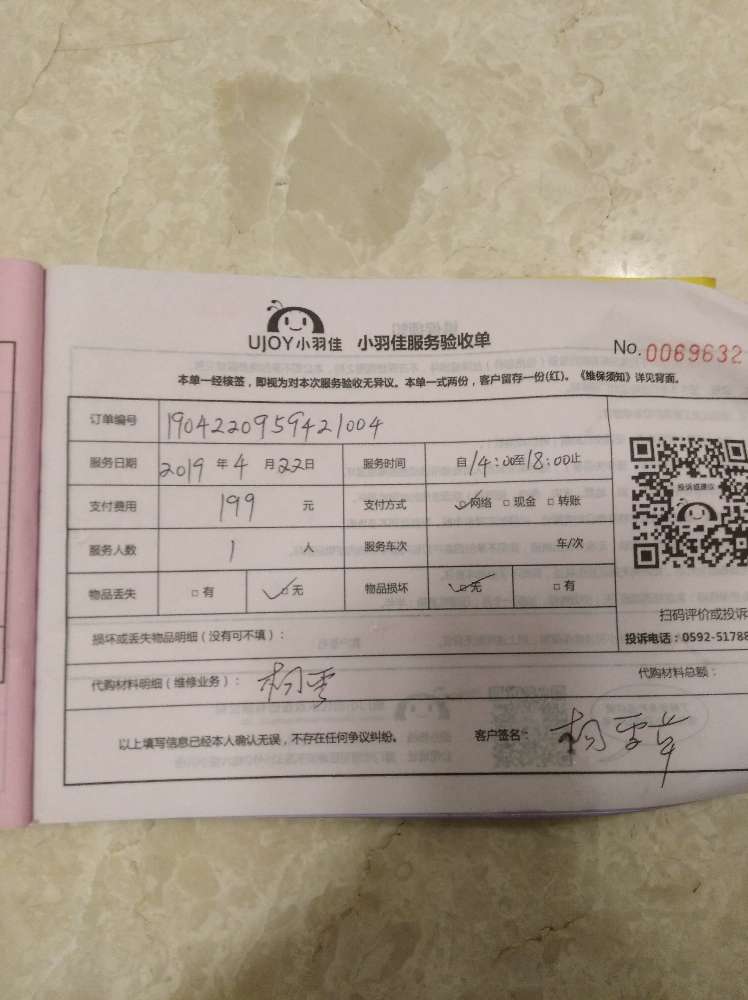 UJOY小羽佳 小羽佳服务验收单
No. 0069632
本单一经核签，即视为对本次服务验收无异议。本单一式两份，客户留存一份(红)。《维保须知》详见背面。
订单编号 1904220959421004
服务日期 2019 年 4 月 22 日 服务时间 自14:00至18:00止
支付费用 199 元 支付方式 ☑网络 □现金 □转账
服务人数 1 人 服务车次 车/次
物品丢失 □有 ☑无 物品损坏 ☑无 □有
投诉或建议
扫码评价或投诉
投诉电话：0592-51788
损坏或丢失物品明细（没有可不填）：
代购材料明细（维修业务）： 代购材料总额：
以上填写信息已经本人确认无误，不存在任何争议纠纷。 客户签名：